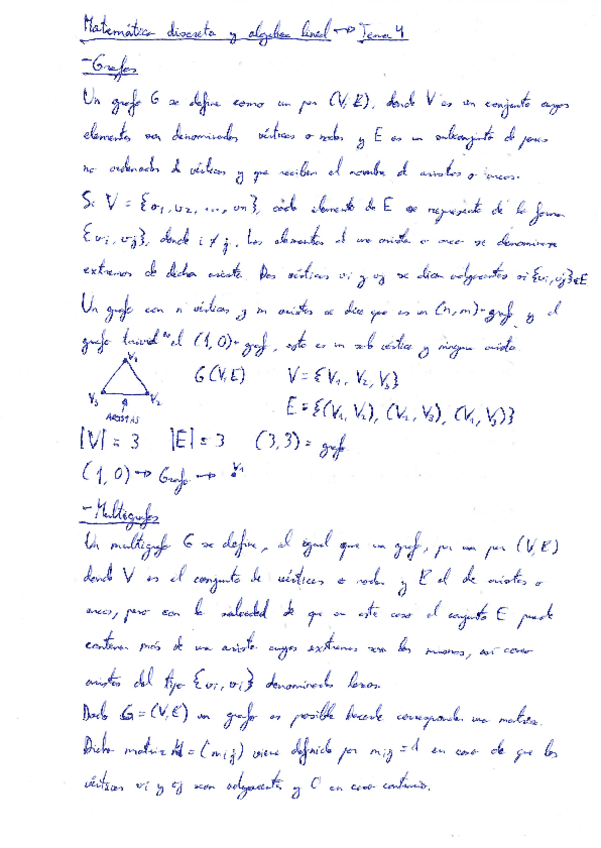 Matemática discreta y algebra lineal → Tema 4
- Grafos
Un grafo G se define como un par (V, E), donde V es un conjunto cuyos
elementos son denominados vértices o nodos y E es un subconjunto de pares
no ordenados de vértices y que reciben el nombre de aristas o arcos.
Si V = {v1, v2, ..., vn}, cada elemento de E se representa de la forma
{vi, vj}, donde i ≠ j. Los elementos de una arista o arco se denominan
extremos de dicha arista. Dos vértices vi y vj se dicen adyacentes si {vi, vj} ∈ E
Un grafo con n vértices y m aristas se dice que es un (n, m)-grafo y el
grafo trivial es el (1, 0)-grafo, esto es un solo vértice y ninguna arista.
V1
G (V, E) V = {V1, V2, V3}
V3 V2
E = {(V1, V2), (V2, V3), (V1, V3)}
ARISTAS
|V| = 3 |E| = 3 (3,3) = grafo
(1, 0) → Grafo → V1
- Multigrafos
Un multigrafo G se define, al igual que un grafo, por un par (V, E)
donde V es el conjunto de vértices o nodos y E el de aristas o
arcos, pero con la salvedad de que en este caso el conjunto E puede
contener más de una arista cuyos extremos sean los mismos, así como
aristas del tipo {vi, vi} denominadas lazos.
Dado G = (V, E) un grafo es posible hacerle corresponder una matriz.
Dicha matriz M = (mij) viene definida por mij = 1 en caso de que los
vértices vi y vj sean adyacentes y 0 en caso contrario.